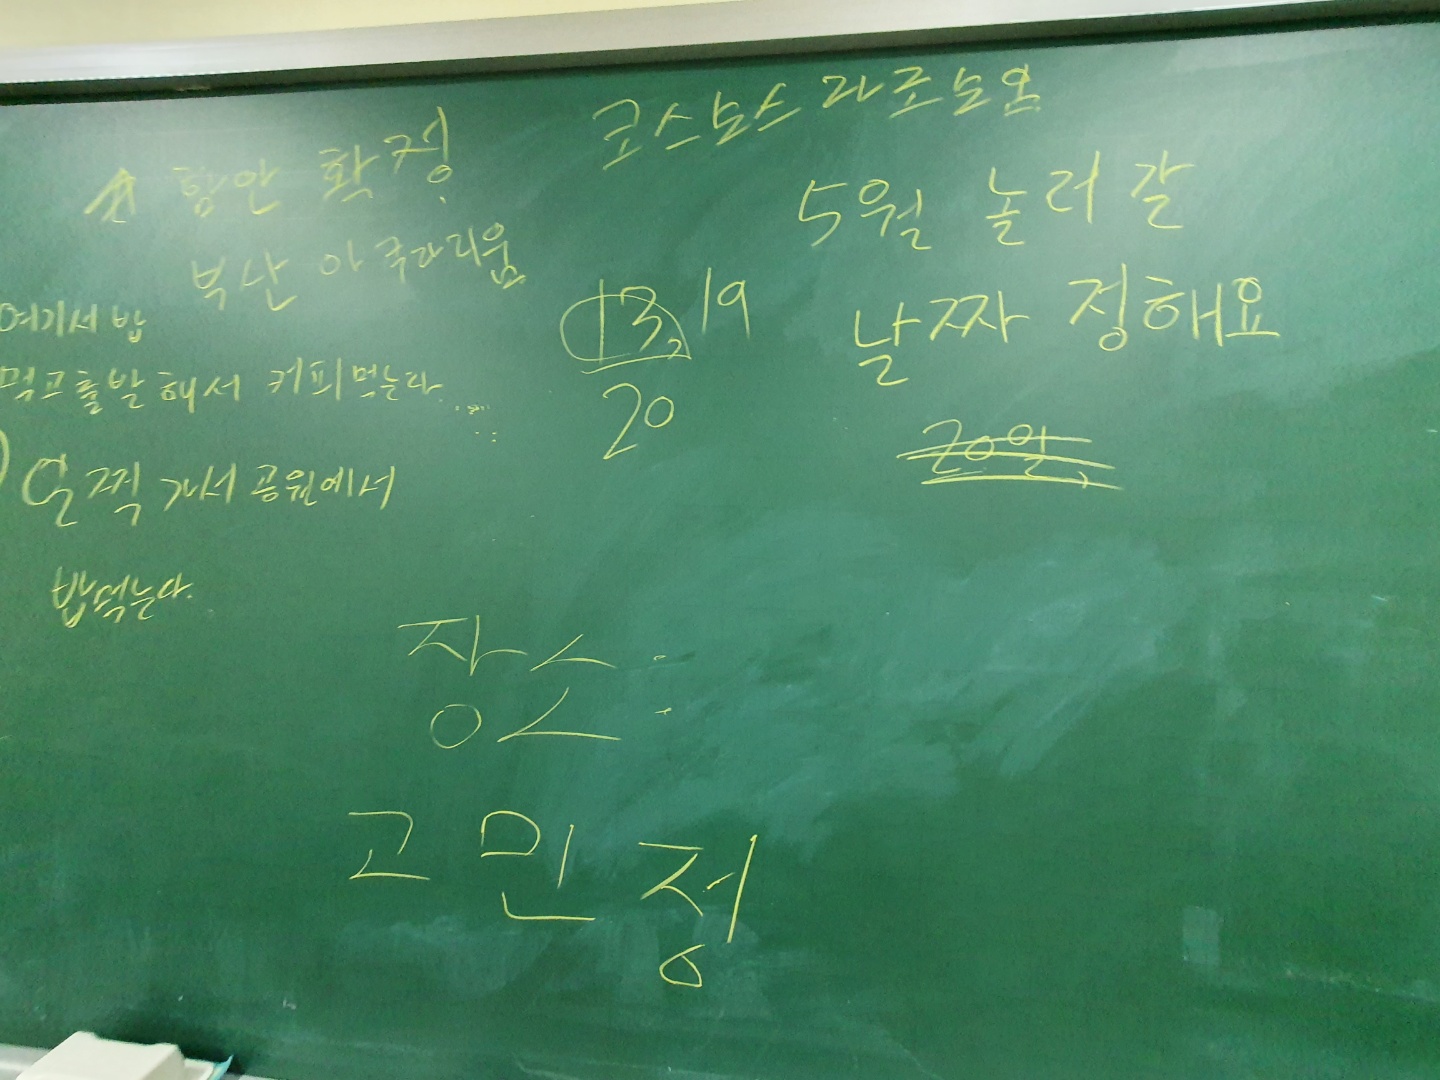 코스모스라조보오
☆ 함안 확정
5월 놀러갈
부산 아쿠라리움
날짜 정해요
13, 19
20
20일,
여기서 밥
먹고출발해서 커피먹는다.....
일찍가서 공원에서
밥먹는다.
장소:
고민정